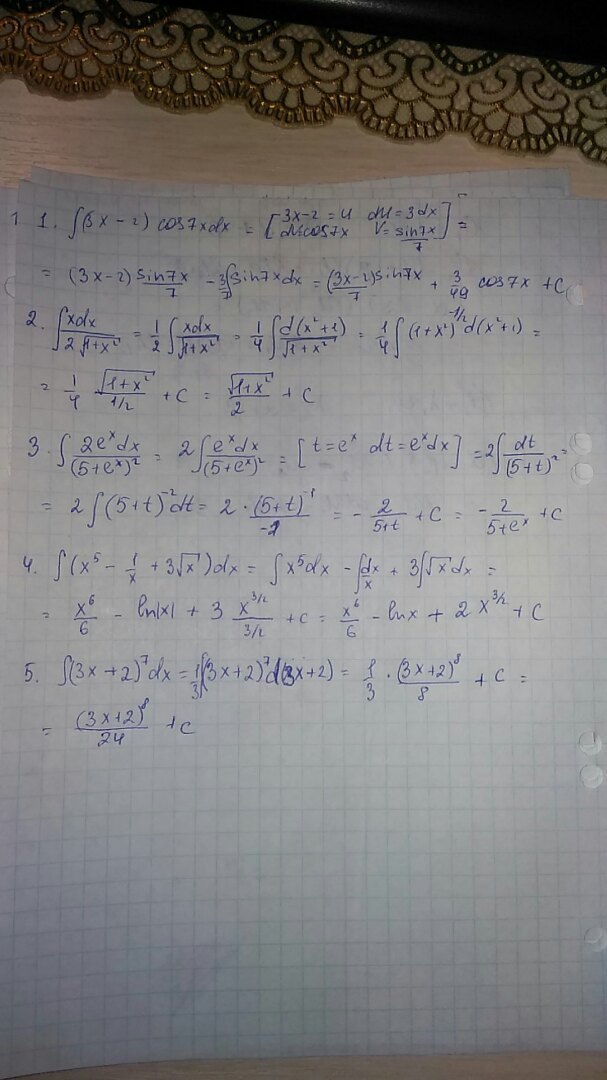 1 1. ∫(3x-2) cos7xdx = [3x-2=u du=3dx dv=cos7x v=sin7x/7] =
= (3x-2) sin7x/7 - 3/7∫sin7xdx = (3x-2)sin7x/7 + 3/49 cos7x + C
2. ∫xdx/2√1+x² = 1/2 ∫xdx/√1+x² = 1/4 ∫d(x²+1)/√1+x² = 1/4 ∫(1+x²)^-1/2 d(x²+1) =
= 1/4 √1+x²/1/2 + C = √1+x²/2 + C
3. ∫2eˣdx/(5+eˣ)² = 2∫eˣdx/(5+eˣ)² = [t=eˣ dt=eˣdx] = 2∫dt/(5+t)² =
= 2∫(5+t)⁻²dt = 2·(5+t)⁻¹/-2 = -2/5+t + C = -2/5+eˣ + C
4. ∫(x⁵ - 1/x + 3√x)dx = ∫x⁵dx - ∫dx/x + 3∫√x dx =
= x⁶/6 - ln|x| + 3 x^3/2/3/2 + C = x⁶/6 - lnx + 2x^3/2 + C
5. ∫(3x+2)⁷dx = 1/3∫(3x+2)⁷d(3x+2) = 1/3 · (3x+2)⁸/8 + C =
= (3x+2)⁸/24 + C